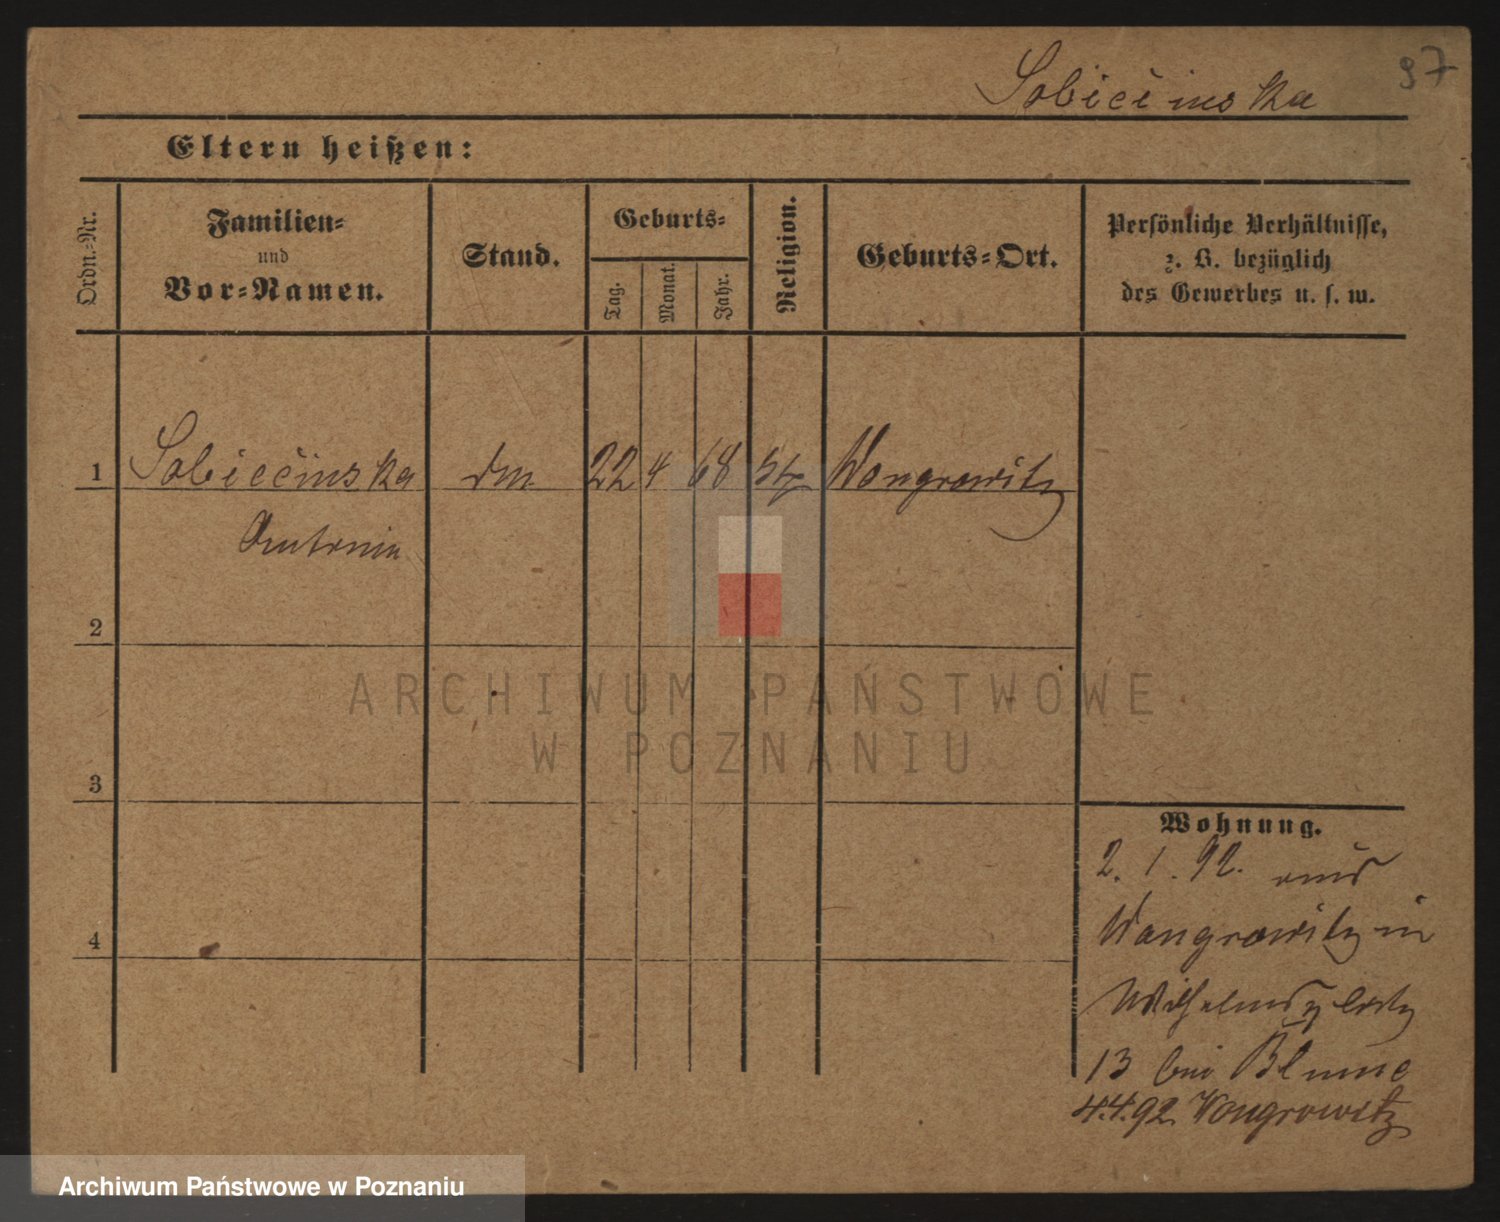 Sobiecinska 97
Eltern heißen:
Ordn.-Nr.
Familien-
und
Vor-Namen.
Stand.
Geburts-
Tag.
Monat.
Jahr.
Religion.
Geburts-Ort.
Persönliche Verhältnisse,
z. B. bezüglich
des Gewerbes u. s. w.
1 Sobiecinska 22 4 68 Wongrowitz
Antonia
2
3
4
Wohnung.
2. 1. 92. aus
Wongrowitz in
Wilhelmsplatz
13 bei Blume
4.4.92 Wongrowitz
ARCHIWUM PAŃSTWOWE
W POZNANIU
Archiwum Państwowe w Poznaniu